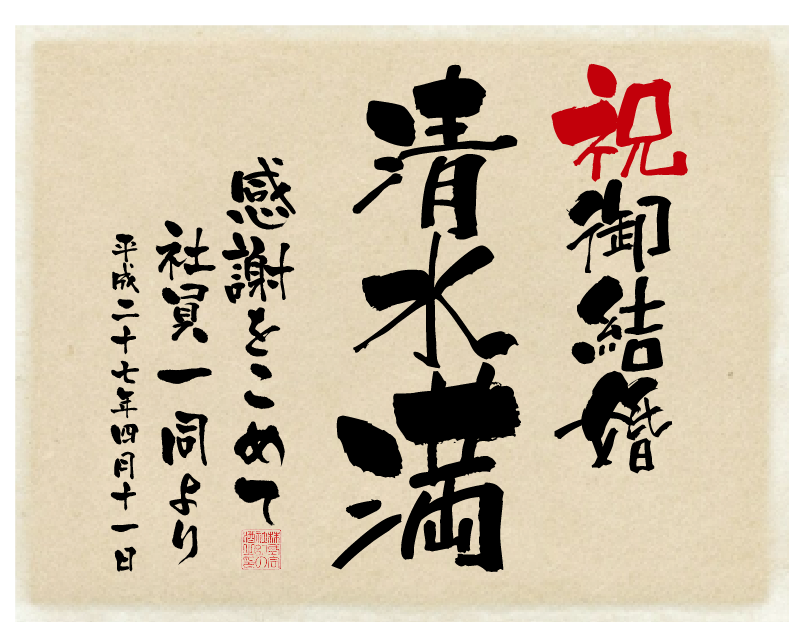 祝御結婚
清水満
感謝をこめて
社員一同より
平成二十七年四月十一日